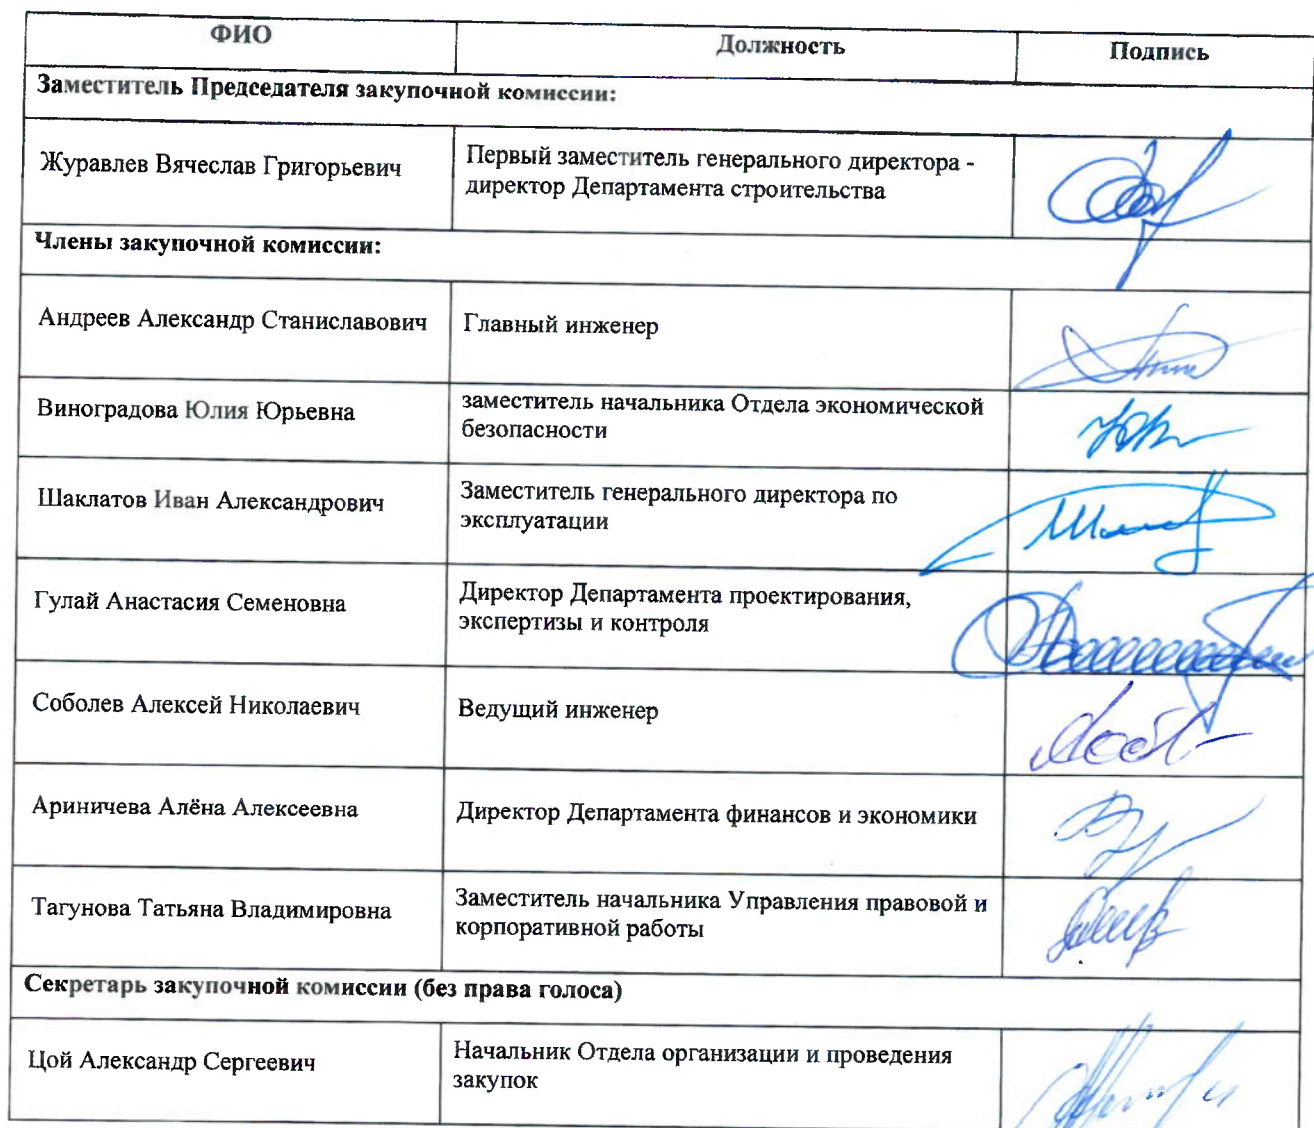 ФИО Должность Подпись
Заместитель Председателя закупочной комиссии:
Журавлев Вячеслав Григорьевич
Первый заместитель генерального директора -
директор Департамента строительства
Члены закупочной комиссии:
Андреев Александр Станиславович
Главный инженер
Виноградова Юлия Юрьевна
заместитель начальника Отдела экономической
безопасности
Шаклатов Иван Александрович
Заместитель генерального директора по
эксплуатации
Гулай Анастасия Семеновна
Директор Департамента проектирования,
экспертизы и контроля
Соболев Алексей Николаевич
Ведущий инженер
Ариничева Алёна Алексеевна
Директор Департамента финансов и экономики
Тагунова Татьяна Владимировна
Заместитель начальника Управления правовой и
корпоративной работы
Секретарь закупочной комиссии (без права голоса)
Цой Александр Сергеевич
Начальник Отдела организации и проведения
закупок